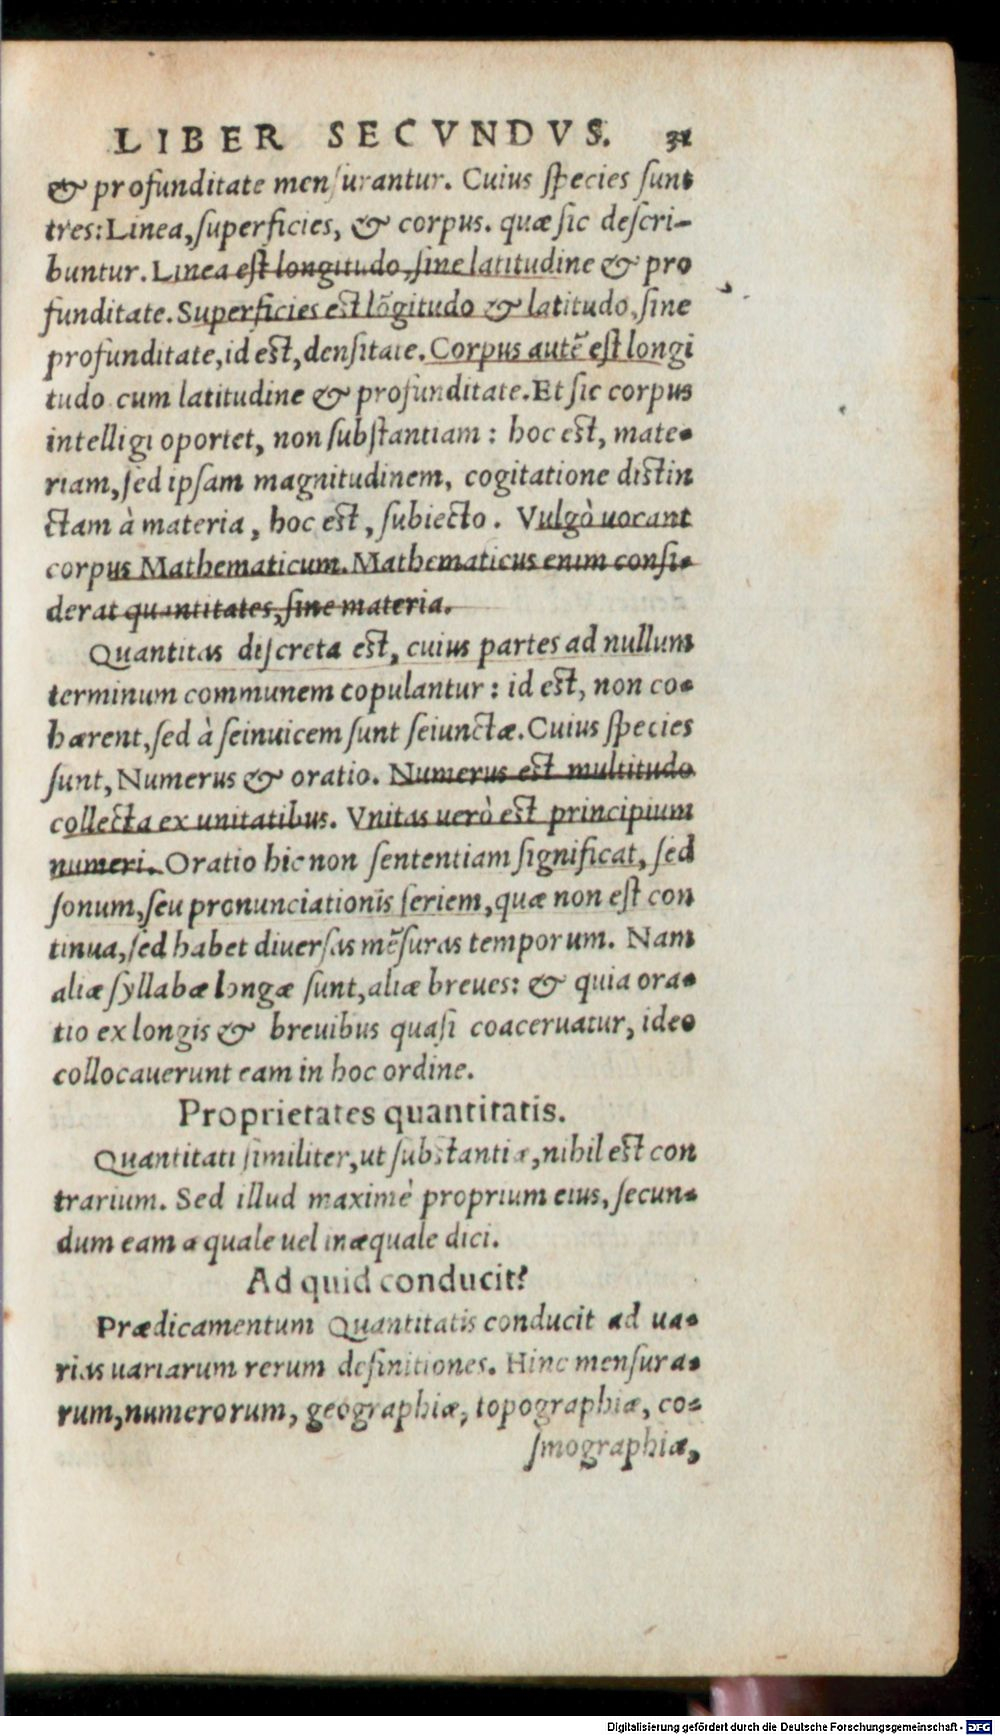 LIBER SECVNDVS. 31
& profunditate menſurantur. Cuius ſpecies ſunt
tres: Linea, ſuperficies, & corpus. quæ ſic deſcri-
buntur. Linea eſt longitudo, ſine latitudine & pro
funditate. Superficies eſt lõgitudo & latitudo, ſine
profunditate, id eſt, denſitate. Corpus autẽ eſt longi
tudo cum latitudine & profunditate. Et ſic corpus
intelligi oportet, non ſubſtantiam: hoc eſt, mate-
riam, ſed ipſam magnitudinem, cogitatione diſtin
ctam à materia, hoc eſt, ſubiecto. Vulgò uocant
corpus Mathematicum. Mathematicus enim conſi-
derat quantitates, ſine materia.
Quantitas diſcreta eſt, cuius partes ad nullum
terminum communem copulantur: id eſt, non co-
hærent, ſed à ſeinuicem ſunt ſeiunctæ. Cuius ſpecies
ſunt, Numerus & oratio. Numerus eſt multitudo
collecta ex unitatibus. Vnitas uerò eſt principium
numeri. Oratio hic non ſententiam ſignificat, ſed
ſonum, ſeu pronunciationis ſeriem, quæ non eſt con
tinua, ſed habet diuerſas mẽſuras temporum. Nam
aliæ ſyllabæ longæ ſunt, aliæ breues: & quia ora-
tio ex longis & breuibus quaſi coaceruatur, ideo
collocauerunt eam in hoc ordine.
Proprietates quantitatis.
Quantitati ſimiliter, ut ſubſtantiæ, nihil eſt con
trarium. Sed illud maximè proprium eius, ſecun-
dum eam æquale uel inæquale dici.
Ad quid conducit?
Prædicamentum Quantitatis conducit ad ua-
rias uariarum rerum definitiones. Hinc menſura-
rum, numerorum, geographiæ, topographiæ, co-
ſmographiæ,
Digitalisierung gefördert durch die Deutsche Forschungsgemeinschaft - DFG